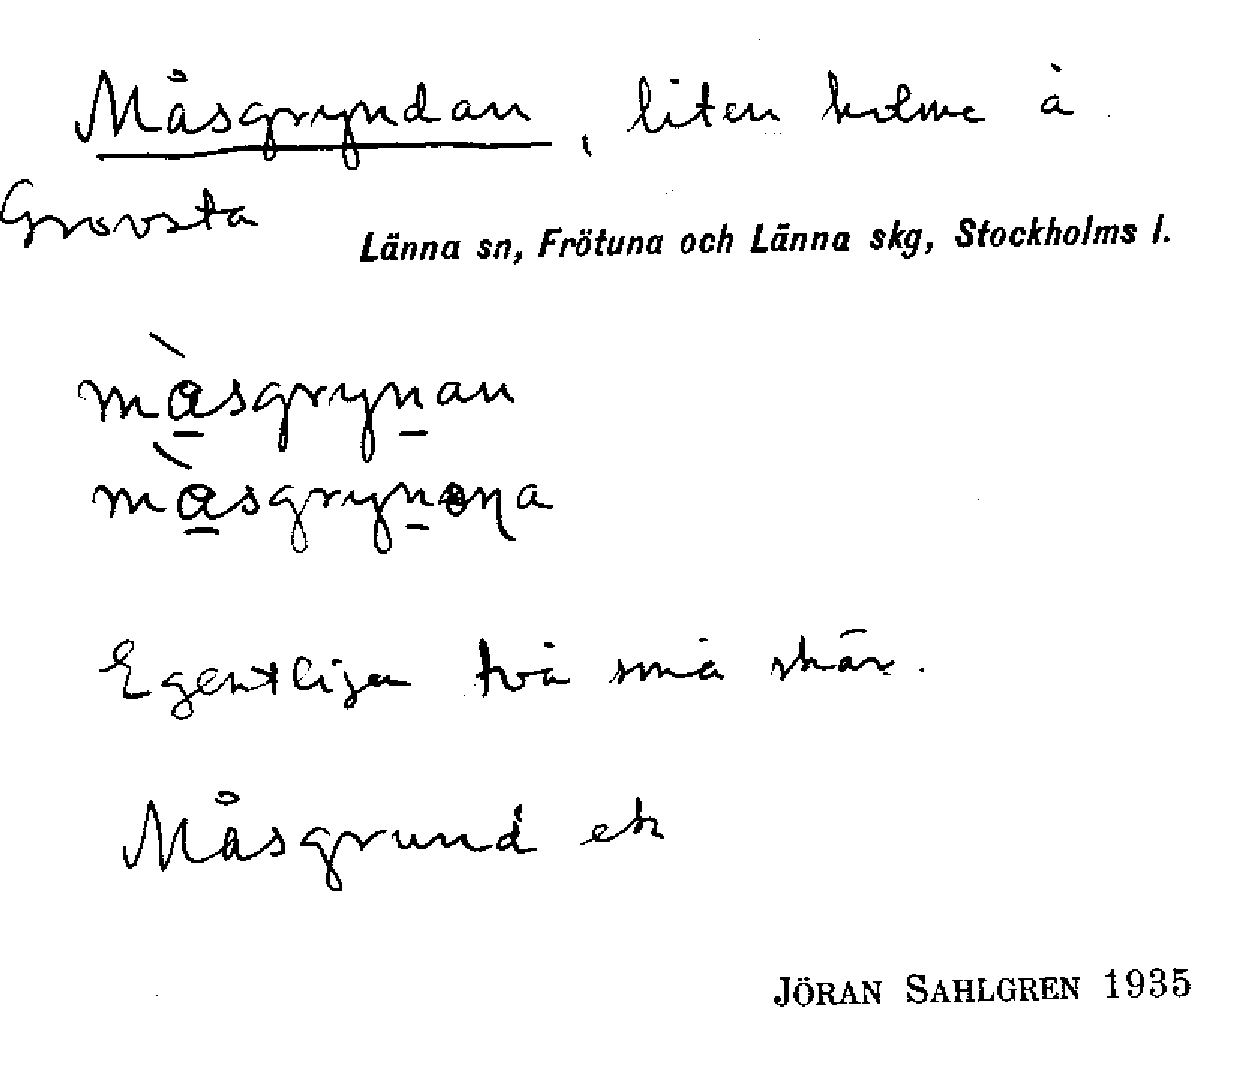 Måsgryndan, liten holme å
Grovsta
Länna sn, Frötuna och Länna skg, Stockholms l.
må̀sgrynan
må̀sgrynana
Egentligen två små skär.
Måsgrund ek
JÖRAN SAHLGREN 1935